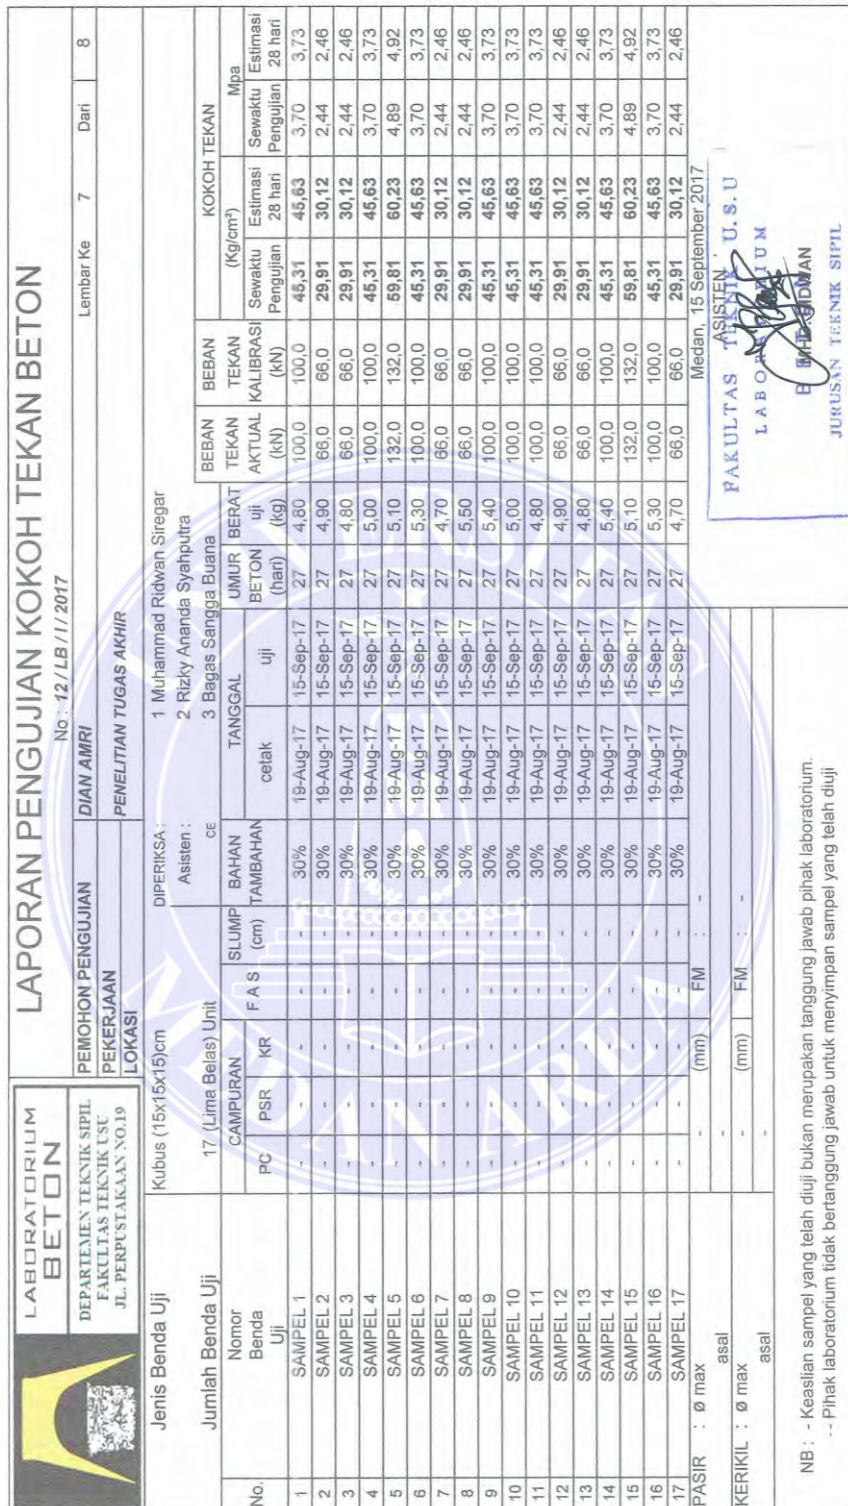 LABORATORIUM
BETON
DEPARTEMEN TEKNIK SIPIL
FAKULTAS TEKNIK USU
JL. PERPUSTAKAAN NO.19
LAPORAN PENGUJIAN KOKOH TEKAN BETON
No : 12 / LB / I / 2017
PEMOHON PENGUJIAN DIAN AMRI Lembar Ke 7 Dari 8
PEKERJAAN PENELITIAN TUGAS AKHIR
LOKASI
Jenis Benda Uji Kubus (15x15x15)cm DIPERIKSA : 1 Muhammad Ridwan Siregar
Asisten : 2 Rizky Ananda Syahputra
Jumlah Benda Uji 17 (Lima Belas) Unit CE 3 Bagas Sangga Buana
No. Nomor Benda Uji CAMPURAN PC PSR KR F A S SLUMP (cm) BAHAN TAMBAHAN TANGGAL cetak uji UMUR BETON (hari) BERAT uji (kg) BEBAN TEKAN AKTUAL (kN) BEBAN TEKAN KALIBRASI (kN) KOKOH TEKAN (Kg/cm²) Sewaktu Pengujian Estimasi 28 hari Mpa Sewaktu Pengujian Estimasi 28 hari
1 SAMPEL 1 - - - - - 30% 19-Aug-17 15-Sep-17 27 4,80 100,0 100,0 45,31 45,63 3,70 3,73
2 SAMPEL 2 - - - - - 30% 19-Aug-17 15-Sep-17 27 4,90 66,0 66,0 29,91 30,12 2,44 2,46
3 SAMPEL 3 - - - - - 30% 19-Aug-17 15-Sep-17 27 4,80 66,0 66,0 29,91 30,12 2,44 2,46
4 SAMPEL 4 - - - - - 30% 19-Aug-17 15-Sep-17 27 5,00 100,0 100,0 45,31 45,63 3,70 3,73
5 SAMPEL 5 - - - - - 30% 19-Aug-17 15-Sep-17 27 5,10 132,0 132,0 59,81 60,23 4,89 4,92
6 SAMPEL 6 - - - - - 30% 19-Aug-17 15-Sep-17 27 5,30 100,0 100,0 45,31 45,63 3,70 3,73
7 SAMPEL 7 - - - - - 30% 19-Aug-17 15-Sep-17 27 4,70 66,0 66,0 29,91 30,12 2,44 2,46
8 SAMPEL 8 - - - - - 30% 19-Aug-17 15-Sep-17 27 5,50 66,0 66,0 29,91 30,12 2,44 2,46
9 SAMPEL 9 - - - - - 30% 19-Aug-17 15-Sep-17 27 5,40 100,0 100,0 45,31 45,63 3,70 3,73
10 SAMPEL 10 - - - - - 30% 19-Aug-17 15-Sep-17 27 5,00 100,0 100,0 45,31 45,63 3,70 3,73
11 SAMPEL 11 - - - - - 30% 19-Aug-17 15-Sep-17 27 4,80 100,0 100,0 45,31 45,63 3,70 3,73
12 SAMPEL 12 - - - - - 30% 19-Aug-17 15-Sep-17 27 4,90 66,0 66,0 29,91 30,12 2,44 2,46
13 SAMPEL 13 - - - - - 30% 19-Aug-17 15-Sep-17 27 4,80 66,0 66,0 29,91 30,12 2,44 2,46
14 SAMPEL 14 - - - - - 30% 19-Aug-17 15-Sep-17 27 5,40 100,0 100,0 45,31 45,63 3,70 3,73
15 SAMPEL 15 - - - - - 30% 19-Aug-17 15-Sep-17 27 5,10 132,0 132,0 59,81 60,23 4,89 4,92
16 SAMPEL 16 - - - - - 30% 19-Aug-17 15-Sep-17 27 5,30 100,0 100,0 45,31 45,63 3,70 3,73
17 SAMPEL 17 - - - - - 30% 19-Aug-17 15-Sep-17 27 4,70 66,0 66,0 29,91 30,12 2,44 2,46
PASIR : Ø max - (mm) FM : -
asal -
KERIKIL : Ø max - (mm) FM : -
asal -
Medan, 15 September 2017
ASISTEN
FAKULTAS TEKNIK U.S.U
RIDWAN
JURUSAN TEKNIK SIPIL
NB : - Keaslian sampel yang telah diuji bukan merupakan tanggung jawab pihak laboratorium.
-- Pihak laboratorium tidak bertanggung jawab untuk menyimpan sampel yang telah diuji
UNIVERSITAS
MEDAN AREA